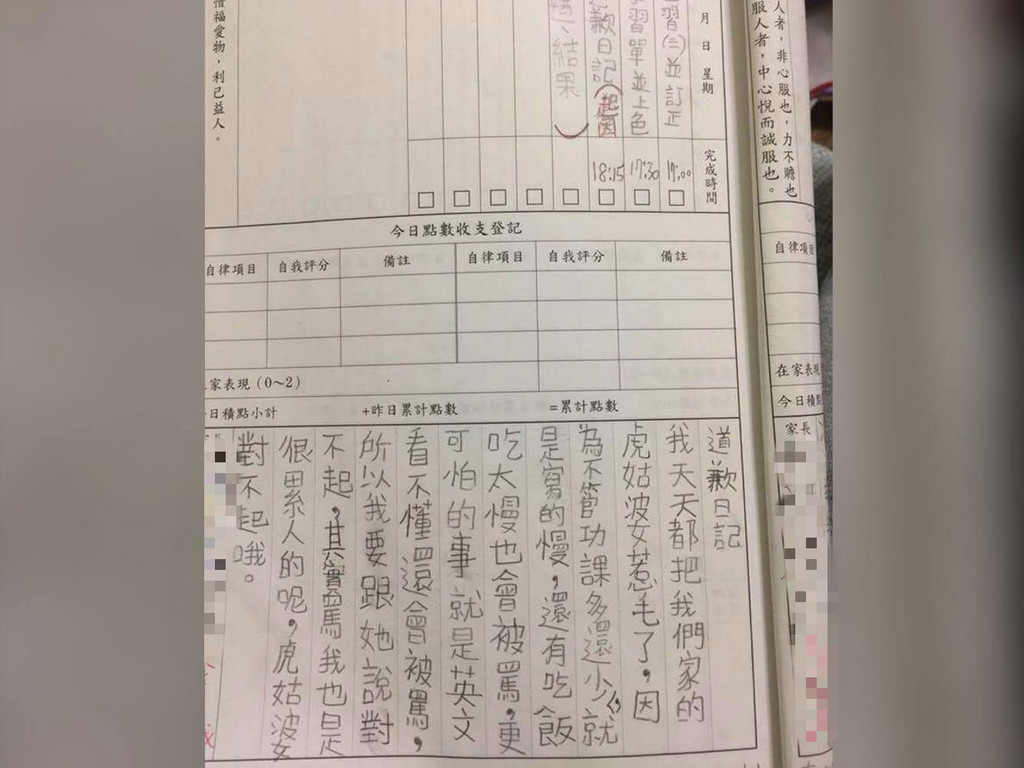 惜福愛物，利己益人。
人者，非心服也，力不贍也
服人者，中心悅而誠服也。
月 日 星期
習(三)並訂正
習單並上色
歉日記(起因
、結果)
完成時間
17:00
17:30
18:15
今日點數收支登記
自律項目 自我評分 備註 自律項目 自我評分 備註
家表現(0～2)
日積點小計 +昨日累計點數 =累計點數
自律項
在家表現
今日積
家長
道歉日記
我天天都把我們家的
虎姑波女惹毛了，因
為不管功課多還少，就
是寫的慢，還有吃飯
吃太慢也會被罵，更
可怕的事就是英文
看不懂還會被罵，
所以我要跟她說對
不起，其實罵我也是
很累人的呢，虎姑波女
對不起哦。